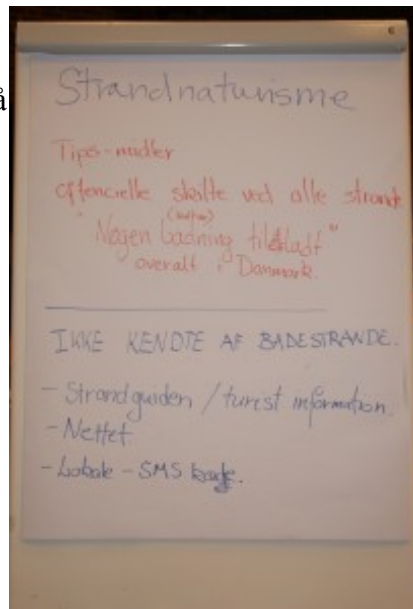 å
6
Strandnaturisme
Tips-midler
offencielle skilte ved alle strande
"Nøgen badning tilladt"
overalt i Danmark.
IKKE KENDTE AF BADESTRANDE.
- Strandguiden / turist information.
- Nettet
- Lokale - SMS